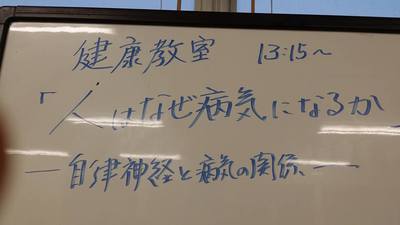 健康教室 13:15~
「人はなぜ病気になるか
―自律神経と病気の関係―